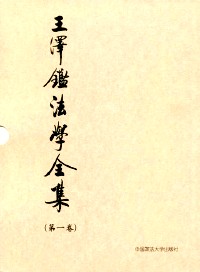 王澤鑑法學全集
(第一卷)
中国政法大学出版社